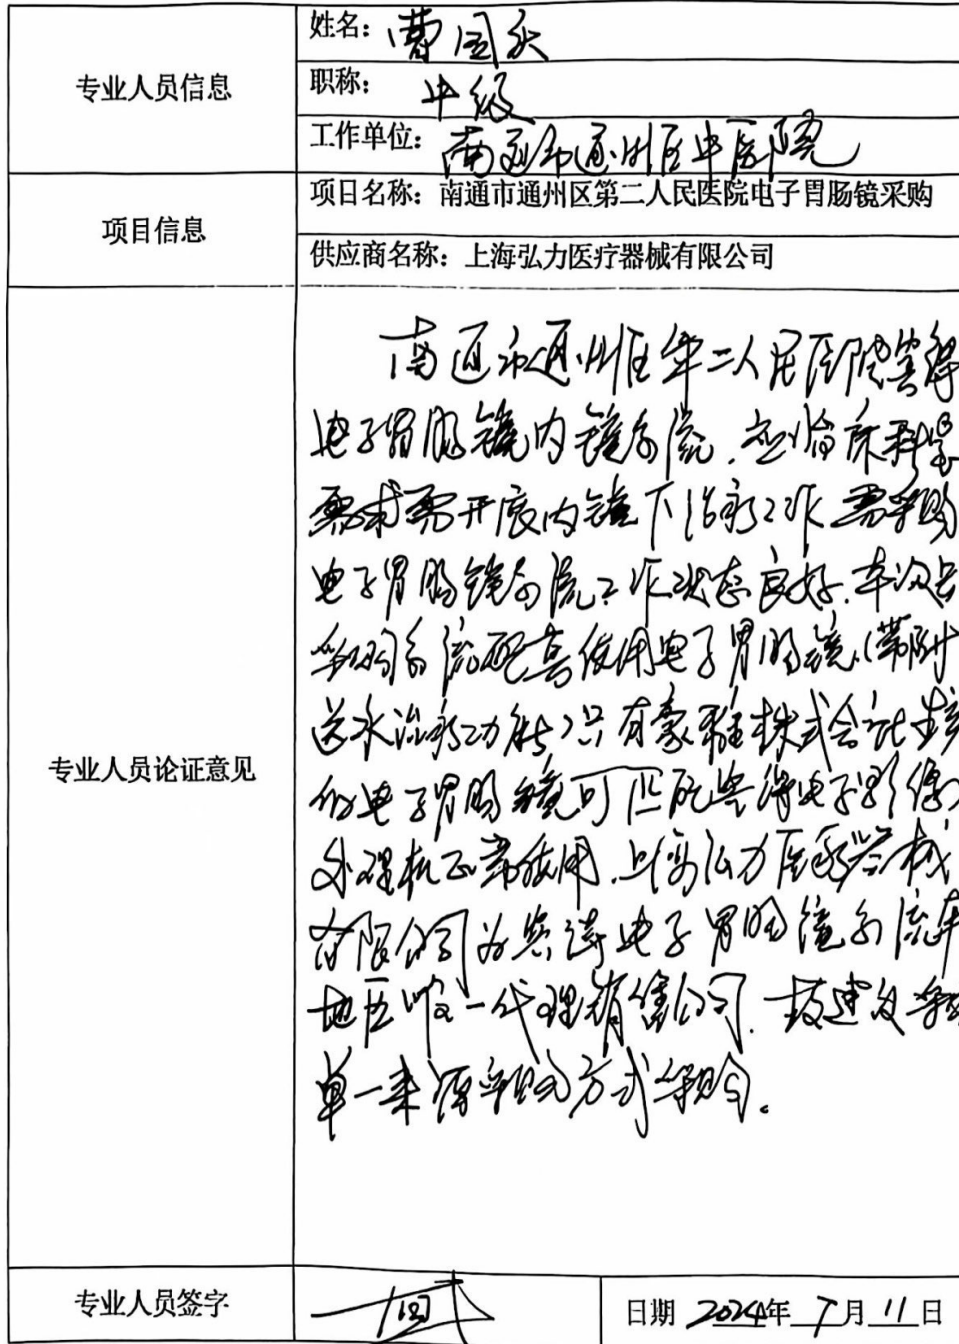 专业人员信息
姓名：曹国
职称：中级
工作单位：南通市通州区中医院
项目信息
项目名称：南通市通州区第二人民医院电子胃肠镜采购
供应商名称：上海弘力医疗器械有限公司
专业人员论证意见
南通市通州区第二人民医院宾得
电子胃肠镜内镜系统，应临床科室
需求需开展内镜下治疗工作需采购
电子胃肠镜系统工作状态良好，本次
采购系统配套使用电子胃肠镜（带附
送水治疗功能）只有豪雅株式会社生产
的电子胃肠镜可匹配宾得电子影像
处理机正常使用，上海弘力医疗器械
有限公司为宾得电子胃肠镜系统本
地区唯一代理销售公司，故建议采
单一来源采购方式采购。
专业人员签字
日期 2024年 7月 11日